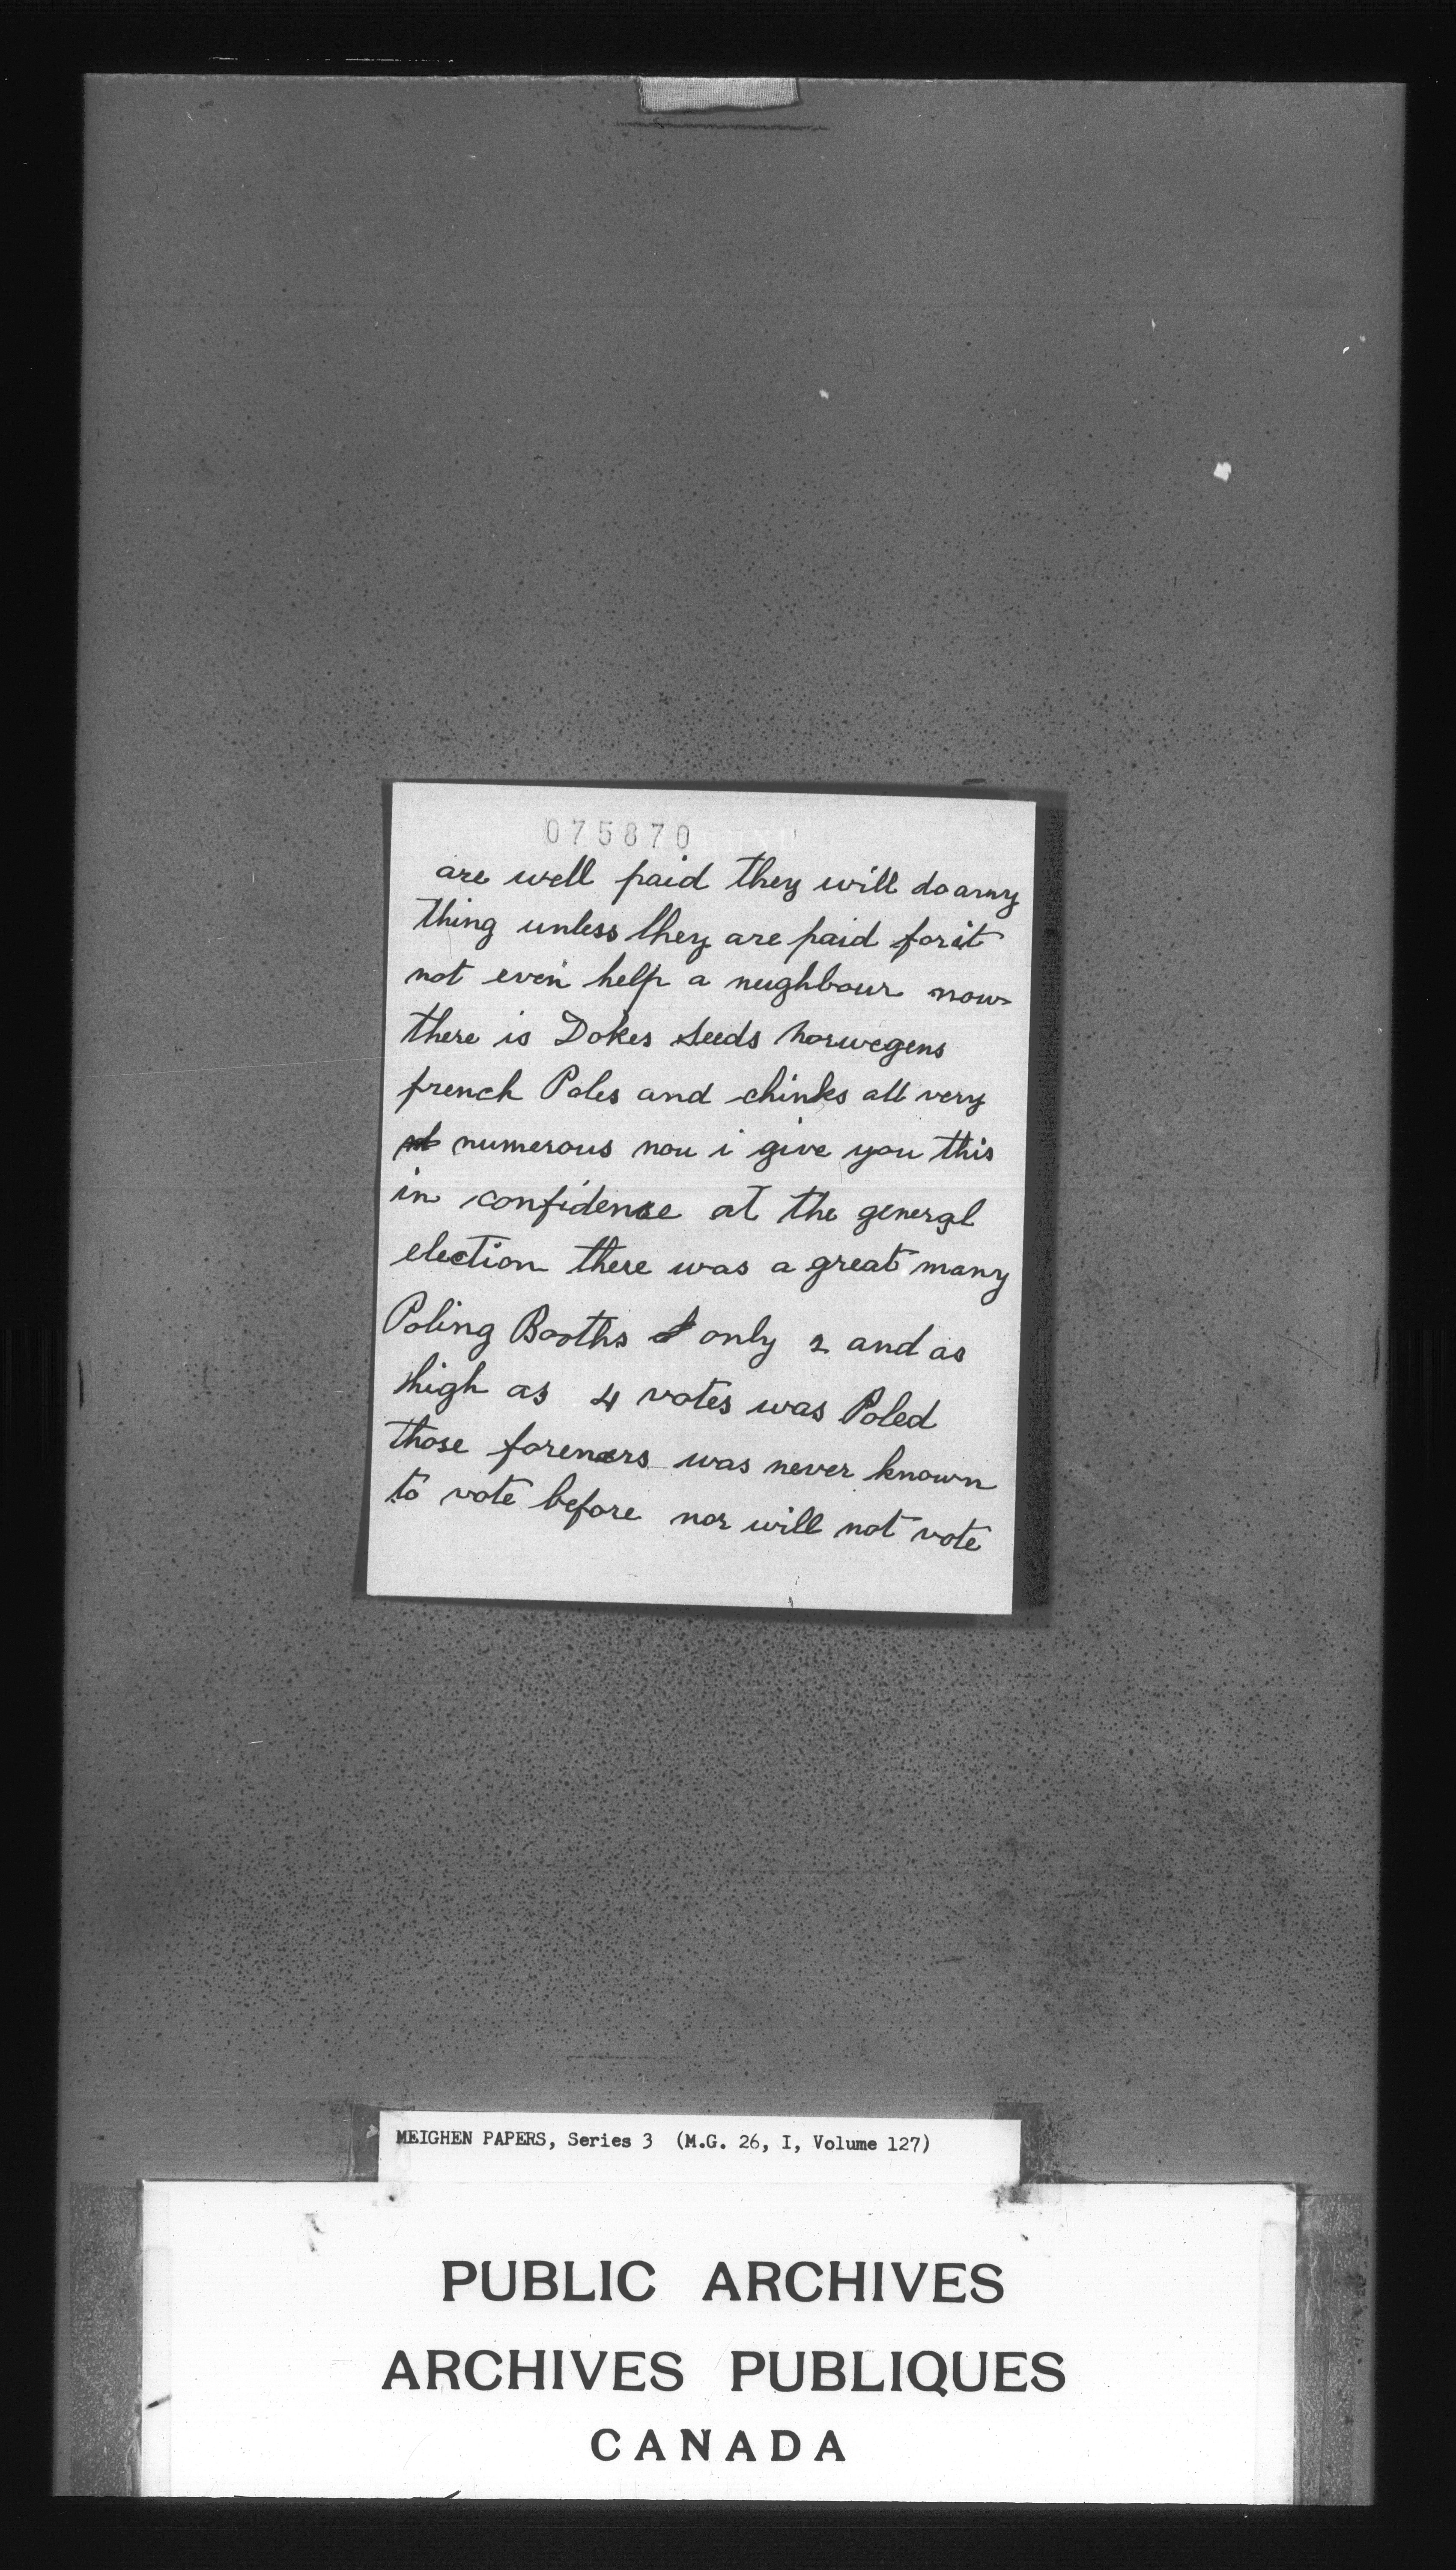 075870
are well paid they will do any
thing unless they are paid for it
not even help a neighbour now
there is Dokes Seeds norwegens
french Poles and chinks all very
numerous nou i give you this
in confidense at the general
election there was a great many
Poling Booths only 2 and as
high as 4 votes was Poled
those foreners was never known
to vote before nor will not vote
MEIGHEN PAPERS, Series 3 (M.G. 26, I, Volume 127)
PUBLIC ARCHIVES
ARCHIVES PUBLIQUES
CANADA